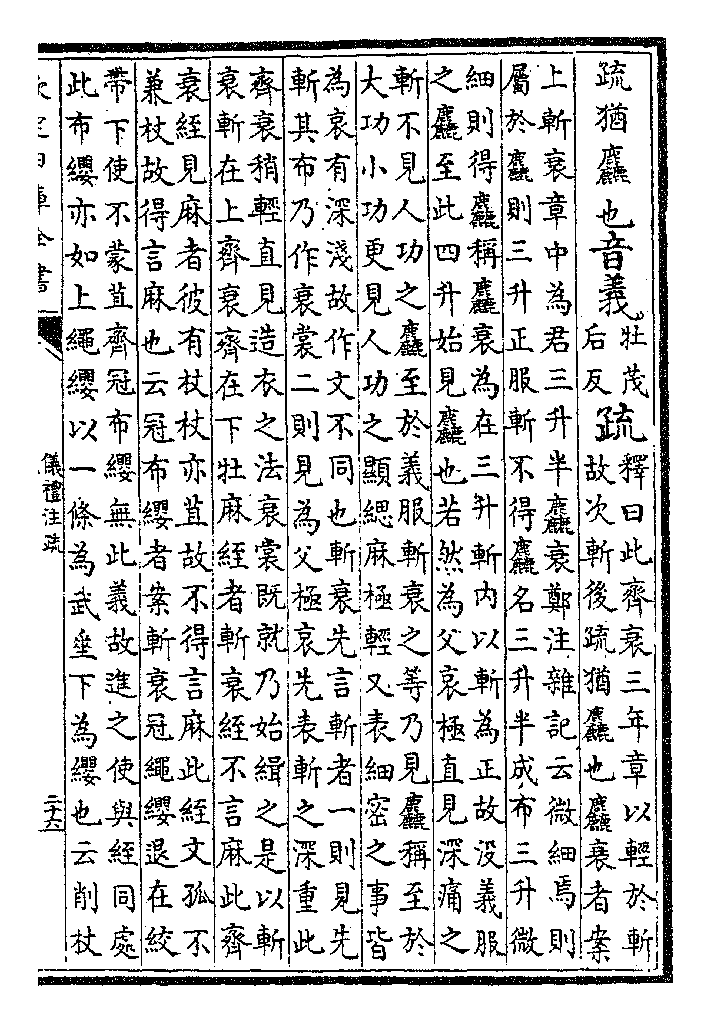 疏猶麤也音義。牡茂后反疏釋曰此齊衰三年章以輕於斬
故次斬後疏猶麤也麤衰者案
上斬衰章中為君三升半麤衰鄭注雜記云微細焉則
屬於麤則三升正服斬不得麤名三升半成布三升微
細則得麤稱麤衰為在三升斬内以斬為正故没義服
之麤至此四升始見麤也若然為父哀極直見深痛之
斬不見人功之麤至於義服斬衰之等乃見麤稱至於
大功小功更見人功之顯緦麻極輕又表細密之事皆
為哀有深淺故作文不同也斬衰先言斬者一則見先
斬其布乃作衰裳二則見為父極哀先表斬之深重此
齊衰稍輕直見造衣之法衰裳既就乃始緝之是以斬
衰斬在上齊衰齊在下牡麻絰者斬衰絰不言麻此齊
衰絰見麻者彼有杖杖亦苴故不得言麻此絰文孤不
兼杖故得言麻也云冠布纓者案斬衰冠繩纓退在絞
帶下使不蒙苴齊冠布纓無此義故進之使與絰同處
此布纓亦如上繩纓以一條為武垂下為纓也云削杖
欽定四庫全書
儀禮注疏
二十六